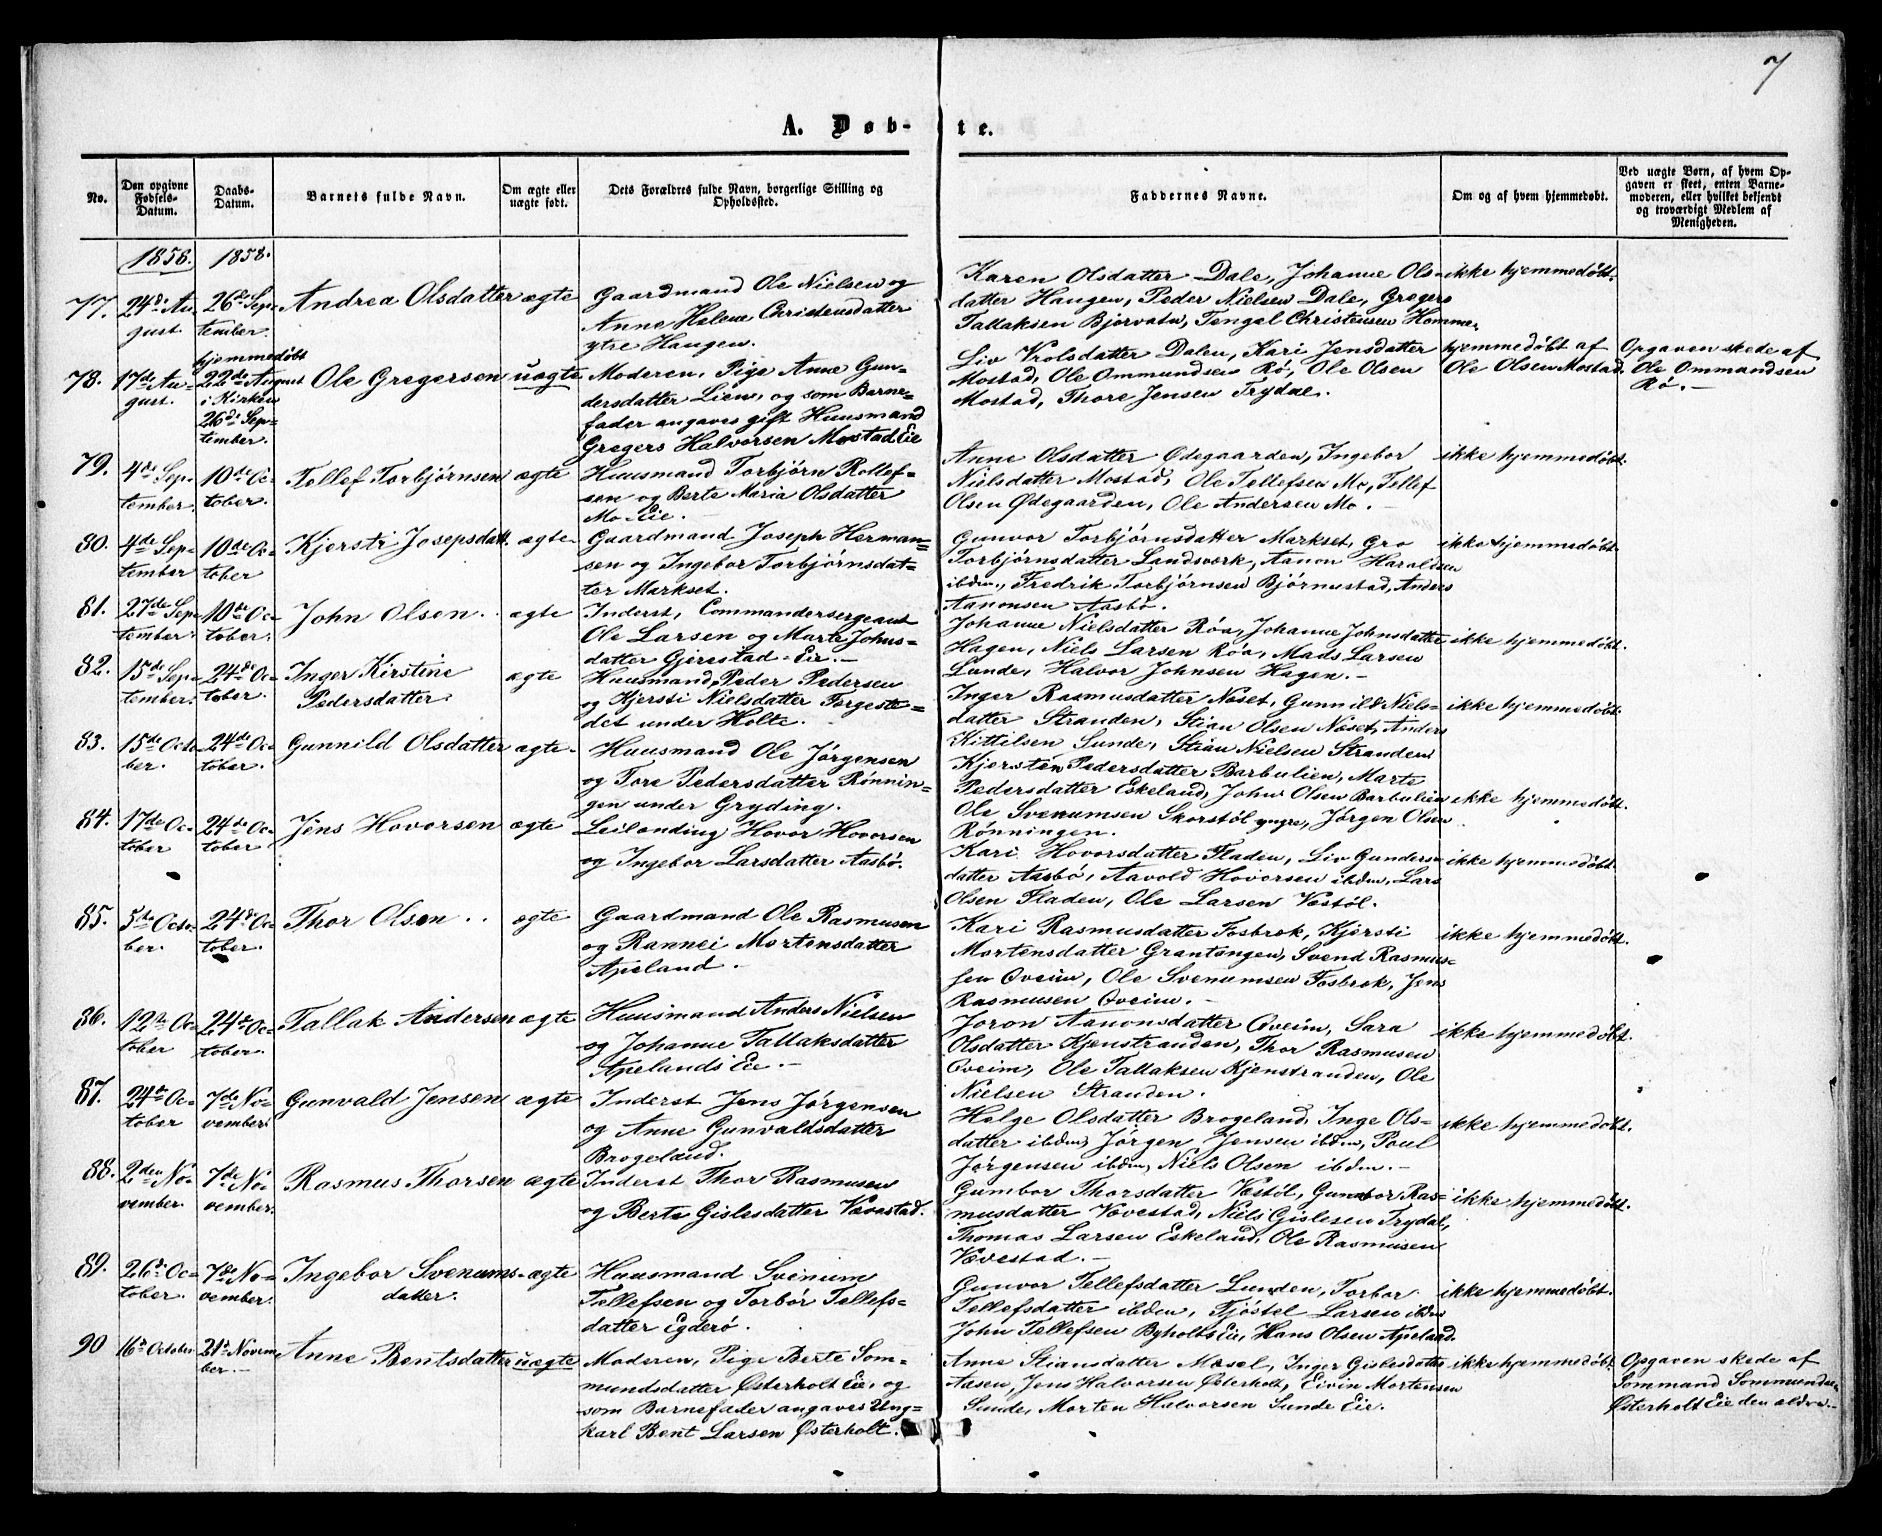 7
A. Døb-te.
No.
Den opgivne Fødsels-Datum.
Daabs-Datum.
Barnets fulde Navn.
Om ægte eller uægte født.
Dets Forældres fulde Navn, borgerlige Stilling og Opholdssted.
Faddernes Navne.
Om og af hvem hjemmedøbt.
Ved uægte Børn, af hvem Opgaven er skeet, enten Barnemoderen, eller hvilket bekjendt og troværdigt Medlem af Menigheden.
1858. 1858.
77. 24de August. 26de September. Andrea Olsdatter ægte
Gaardmand Ole Nielsen og
Anne Helene Christensdatter
ytre Haugen.
Karen Olsdatter Dale, Johanne Ols-
datter Haugen, Peder Nielsen Dale, Gregers
Tallaksen Bjorvatn, Tengel Christensen Homme.
ikke hjemmedøbt.
78. 17de August. hjemmedøbt 22de August i Kirken 26de September. Ole Gregersen uægte
Moderen, Pige Anne Gun-
dersdatter Lien, og som Barne-
fader angaves gift Huusmand
Gregers Halvorsen Mostad Eie
Liv Vrolsdatter Dalen, Kari Jensdatter
Mostad, Ole Ommundsen Rø, Ole Olsen
Mostad, Thore Jensen Trydal.
hjemmedøbt af
Ole Olsen Mostad.
Opgaven skede af
Ole Ommundsen
Rø.
79. 4de September. 10de October. Tellef Torbjørnsen ægte
Huusmand Torbjørn Rollef-
sen og Berte Maria Olsdatter
Mo Eie.
Anne Olsdatter Ødegaarden, Ingebor
Nielsdatter Mostad, Ole Tellefsen Mo, Tellef
Olsen Ødegaarden, Ole Andersen Mo.
ikke hjemmedøbt.
80. 4de September 10de October Kjersti Josepsdatt. ægte
Gaardmand Joseph Herman-
sen og Ingebor Torbjørnsdat-
ter Markset.
Gunvor Torbjørnsdatter Markset, Gro
Torbjørnsdatter Landsværk, Aanon Haroldsen
ibdem, Fredrik Torbjørnsen Bjørnustad, Anders
Aanonsen Aasbø.
ikke hjemmedøbt.
81. 27de September. 10de October. John Olsen. ægte
Inderst, Commandersergeant
Ole Larsen og Marte Johns-
datter Gjerestad Eie.
Johanne Nielsdatter Røa, Johanne Johnsdatter
Hagen, Niels Larsen Røa, Mads Larsen
Lunde, Halvor Johnsen Hagen.
ikke hjemmedøbt.
82. 15de September. 24de October. Inger Kirstine Pedersdatter. ægte
Huusmand, Peder Pedersen
og Kjersti Nielsdatter Torgeste-
det under Holte.
Inger Rasmusdatter Næset, Gunnild Niels-
datter Stranden, Stian Olsen Næset, Anders
Kittilsen Sunde, Stian Nielsen Stranden
ikke hjemmedøbt.
83. 15de October. 24de October. Gunnild Olsdatter ægte
Huusmand Ole Jørgensen
og Tore Pedersdatter Rønnin-
gen under Gryding.
Kjersten Pedersdatter Barbulien, Marte
Pedersdatter Eskeland, John Olsen Barbulien
Ole Svenumsen Skorstøl yngre, Jørgen Olsen
Rønningen.
ikke hjemmedøbt.
84. 17de October 24de October Jens Hovorsen ægte
Leilending Hovor Hovorsen
og Ingebor Larsdatter Aasbø.
Kari Hovorsdatter Fladen, Liv Gunders-
datter Aasbø, Aavold Hovorsen ibdem, Lars
Olsen Fladen, Ole Larsen Vestøl.
ikke hjemmedøbt.
85. 5te October. 24de October. Thor Olsen ægte
Gaardmand Ole Rasmusen
og Rannei Mortensdatter
Apeland.
Kari Rasmusdatter Fosbrok, Kjersti
Mortensdatter Grantangen, Svend Rasmus-
sen Oveim, Ole Svenumsen Fosbrok, Jens
Rasmusen Oveim.
ikke hjemmedøbt.
86. 12te October 24de October. Tallak Andersen ægte
Huusmand Anders Nielsen
og Johanne Tallaksdatter
Apelands Eie.
Joron Aanonsdatter Oveim, Sara
Olsdatter Kjenstranden, Thor Rasmusen
Oveim, Ole Tallaksen Kjenstranden, Ole
Nielsen Stranden.
ikke hjemmedøbt.
87. 24de October 7de November. Gunvald Jensen ægte
Inderst Jens Jørgensen
og Anne Gunvaldsdatter
Brogeland.
Helge Olsdatter Brogeland, Inge Ols-
datter ibdem, Jørgen Jensen ibdem, Poul
Jørgensen ibdem, Niels Olsen ibdem.
ikke hjemmedøbt.
88. 2den November. 7de November. Rasmus Thorsen ægte
Inderst Thor Rasmusen
og Berte Gislesdatter Vævestad.
Gumbor Thorsdatter Vestøl, Gumbor Ras-
musdatter Vævestad, Niels Gislesen Trydal,
Thomas Larsen Eskeland, Ole Rasmusen
Vævestad.
ikke hjemmedøbt.
89. 26de October. 7de November. Ingebor Svenums-datter. ægte
Huusmand Svenum
Tellefsen og Torbør Tellefs-
datter Egderø.
Gunvor Tellefsdatter Lunden, Torbor
Tellefsdatter ibdem, Fjøstel Larsen ibdm
John Tellefsen Byholts Eie, Hans Olsen Apeland.
ikke hjemmedøbt.
90 16de October 21de November. Anne Bentsdatter uægte
Moderen, Pige Berte Som-
mundsdatter Østerholt Eie, og
som Barnefader angaves Ung-
karl Bent Larsen Østerholt.
Anne Stiansdatter Mæsel, Inger Gislesdatter
Aasen, Jens Halvorsen Østerholt, Eivin Mortensen
Sunde, Morten Halvorsen Sunde Eie.
ikke hjemmedøbt
Opgaven skede af
Sommund Sommundsen
Østerholt Eie den ældre.